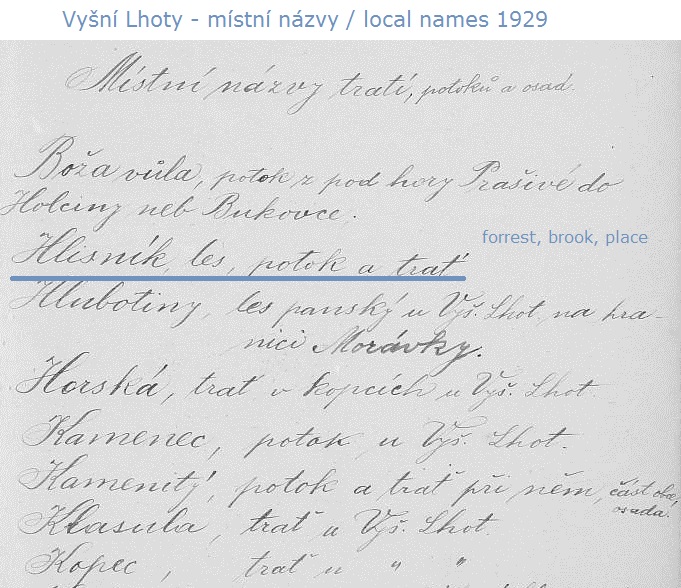 Vyšní Lhoty - místní názvy / local names 1929
Místní názvy tratí, potoků a osad.
Boža vůla, potok z pod hory Prašivé do
Holčiny neb Bukovce.
forrest, brook, place
Hlisník, les, potok a trať
Hlubotiny, les panský u Vyš. Lhot, na hra-
nici Morávky.
Horská, trať v kopcích u Vyš. Lhot.
Kamenec, potok u Vyš. Lhot.
Kamenitý, potok a trať při něm, část obce,
osada.
Klasula, trať u Vyš. Lhot.
Kopec, trať u " "